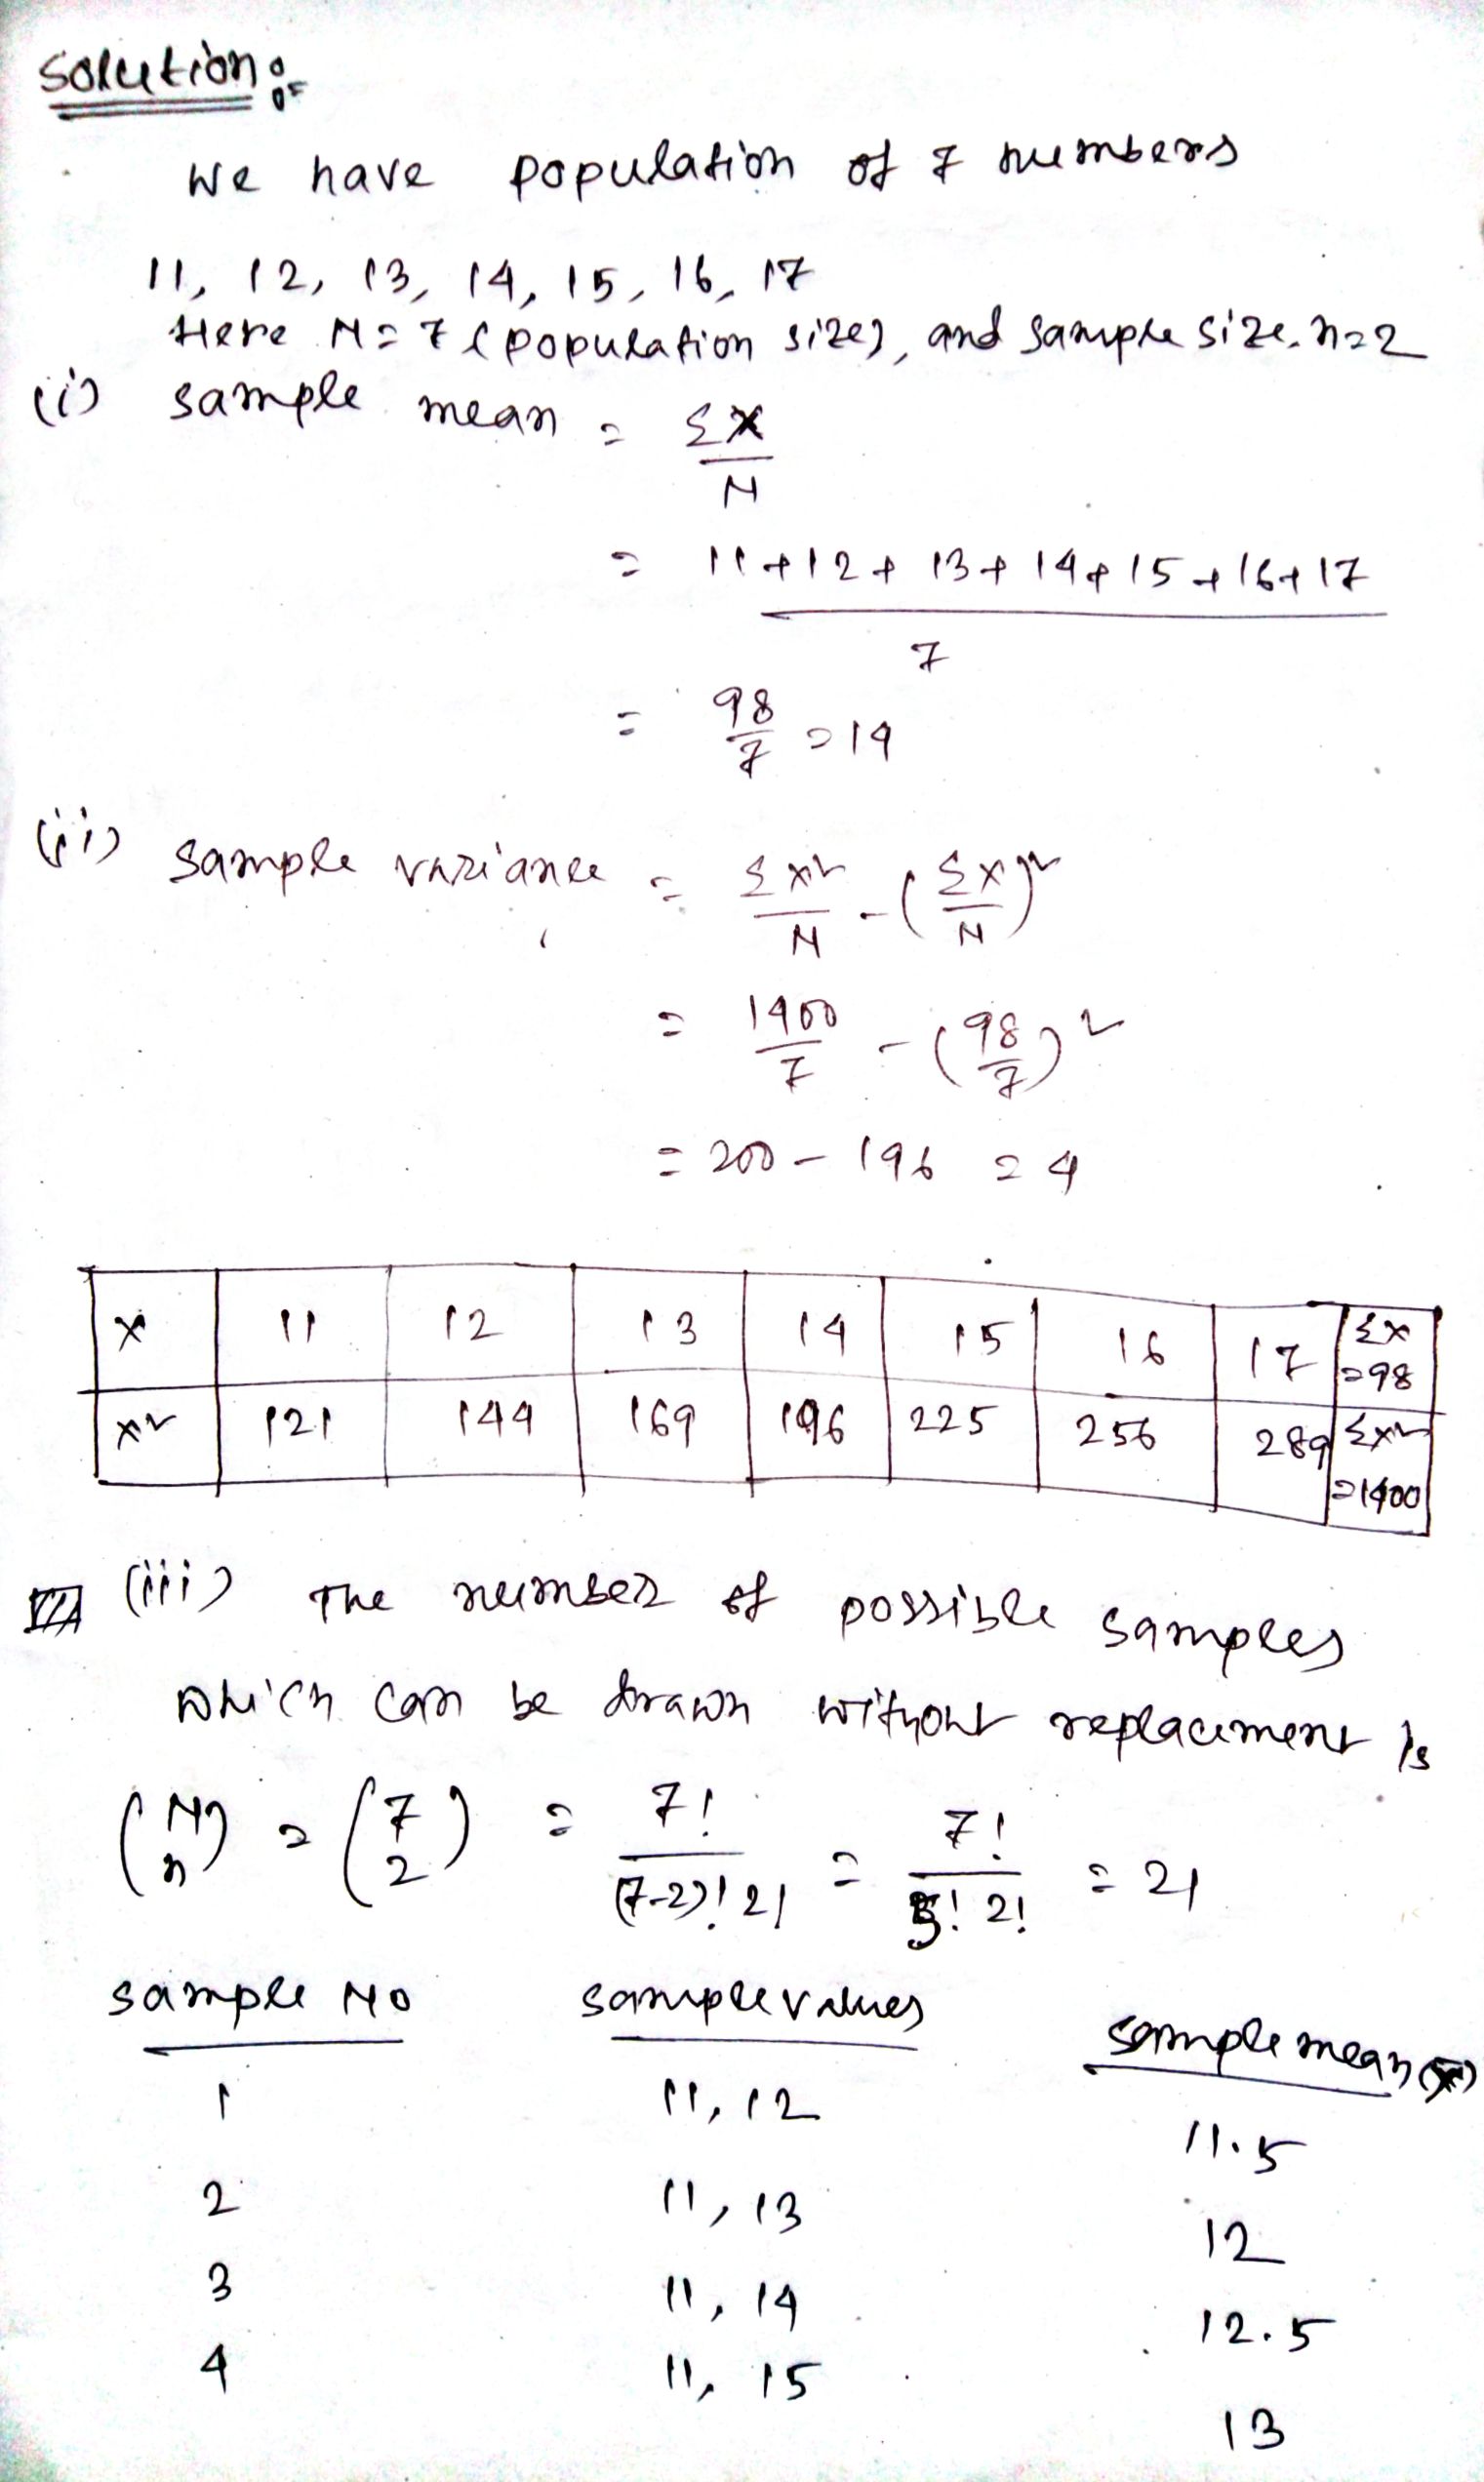 Solution:-
We have population of 7 numbers
11, 12, 13, 14, 15, 16, 17
Here N = 7 (population size), and sample size, n=2
(i) sample mean = ΣX/N
= 11+12+13+14+15+16+17 / 7
= 98/7 = 14
(ii) sample variance = Σx²/N - (Σx/N)²
= 1400/7 - (98/7)²
= 200 - 196 = 4
x 11 12 13 14 15 16 17 Σx = 98
x² 121 144 169 196 225 256 289 Σx² = 1400
(iii) The number of possible samples
which can be drawn without replacement is
(N n) = (7 2) = 7!/(7-2)! 2! = 7!/5! 2! = 21
sample No sample values sample mean (x̄)
1 11, 12 11.5
2 11, 13 12
3 11, 14 12.5
4 11, 15 13